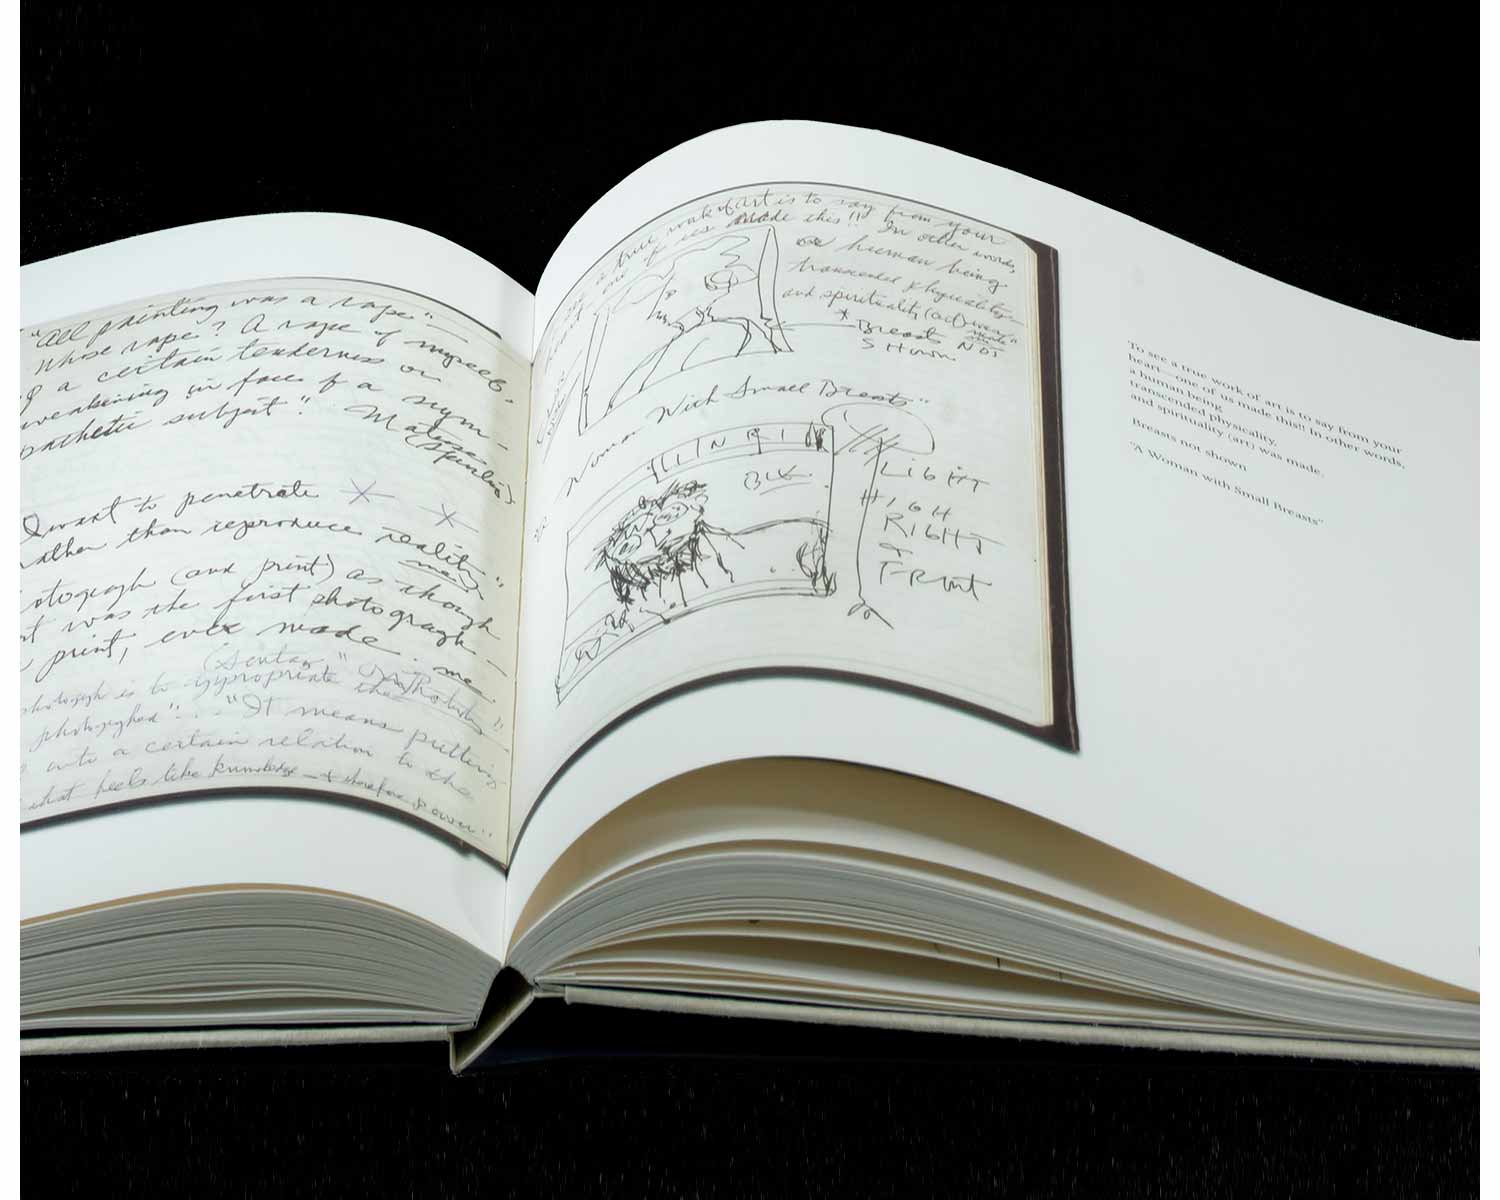 "All painting was a rape"—
Whose rape? A rape of myself,
of a certain tenderness or
weakening in face of a sym-
pathetic subject". Malraux
(Picasso)
I want to penetrate
rather than reproduce reality"
me.
photograph (and print) as though
it was the first photograph—
print, ever made. me.
(Sontag "On Photography"
photograph is to appropriate the
photographed".... "It means putting
into a certain relation to the
that feels like knowledge — & therefore power"
a true work of art is to say from your
one of us made this!! In other words,
a human being
transcended physicality—
and spirituality (art) was
made"
* Breasts NOT
SHown
Woman With Small Breasts"
INRI
BLK
LIGHT
HIGH
RIGHT
&
FRONT
To see a true work of art is to say from your
heart—one of us made this!! In other words,
a human being
transcended physicality,
and spirituality (art) was made.
Breasts not shown
"A Woman with Small Breasts"